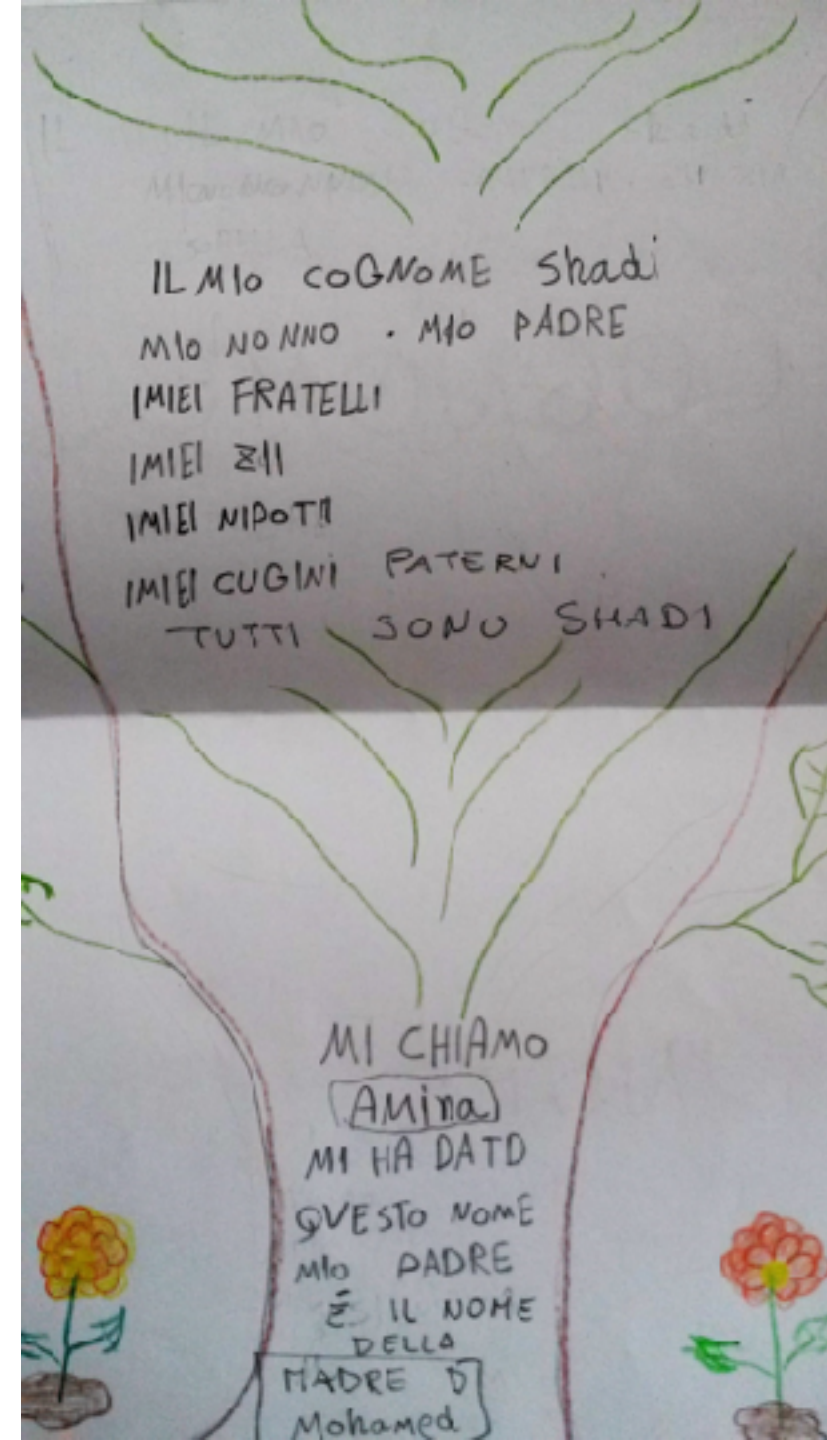 IL MIO COGNOME Shadi
MIO NONNO . MIO PADRE
I MIEI FRATELLI
I MIEI ZII
I MIEI NIPOTI
I MIEI CUGINI PATERNI.
TUTTI SONO SHADI
MI CHIAMO
Amina
MI HA DATO
QUESTO NOME
MIO PADRE
É IL NOME
DELLA
MADRE DI
Mohamed